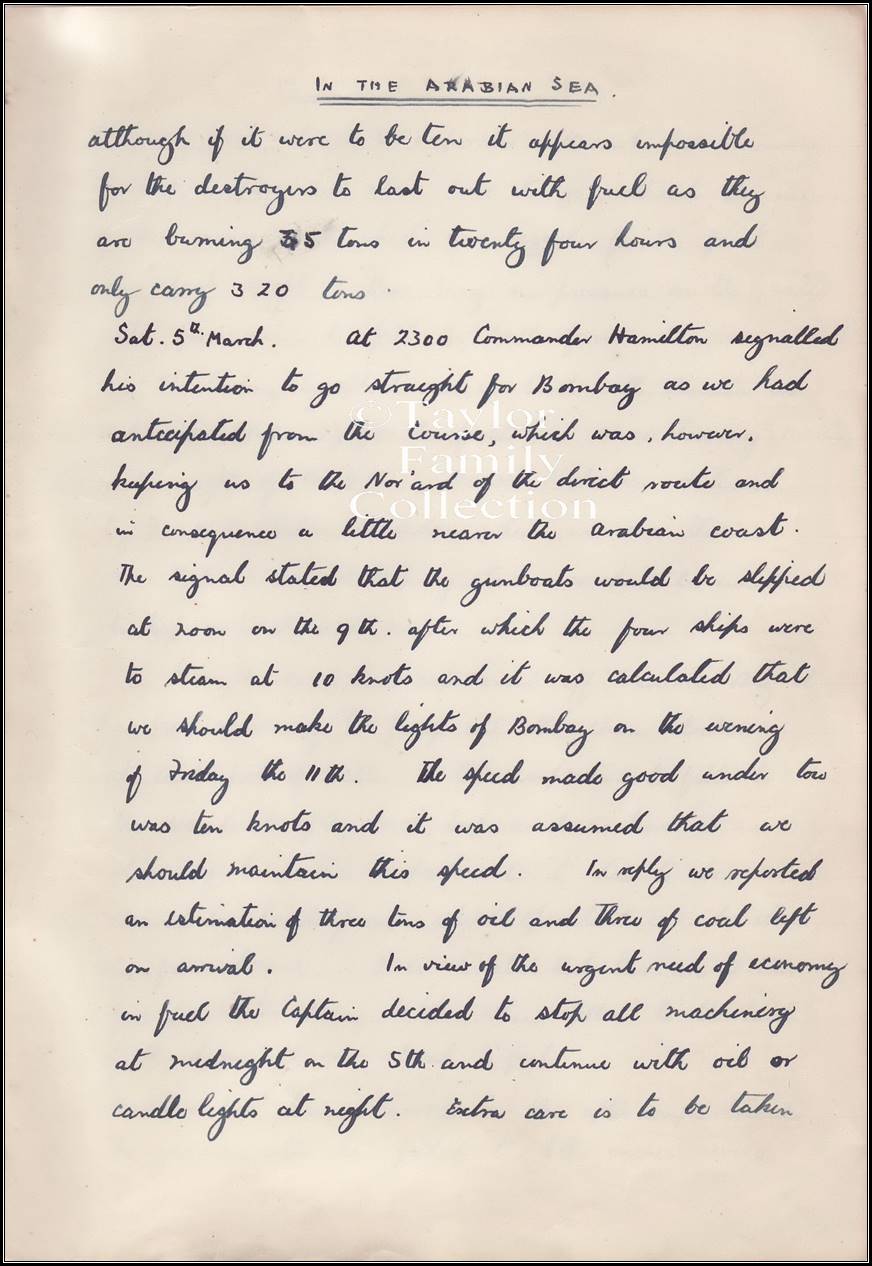 IN THE ARABIAN SEA.
although if it were to be ten it appears impossible
for the destroyers to last out with fuel as they
are burning 35 tons in twenty four hours and
only carry 320 tons.
Sat. 5th. March. At 2300 Commander Hamilton signalled
his intention to go straight for Bombay as we had
anticipated from the course, which was, however,
keeping us to the Nor'ard of the direct route and
in consequence a little nearer the Arabian coast.
The signal stated that the gunboats would be slipped
at noon on the 9th. after which the four ships were
to steam at 10 knots and it was calculated that
we should make the lights of Bombay on the evening
of Friday the 11th. The speed made good under tow
was ten knots and it was assumed that we
should maintain this speed. In reply we reported
an estimation of three tons of oil and three of coal left
on arrival. In view of the urgent need of economy
in fuel the Captain decided to stop all machinery
at midnight on the 5th and continue with oil or
candle lights at night. Extra care is to be taken
©Taylor
Family
Collection